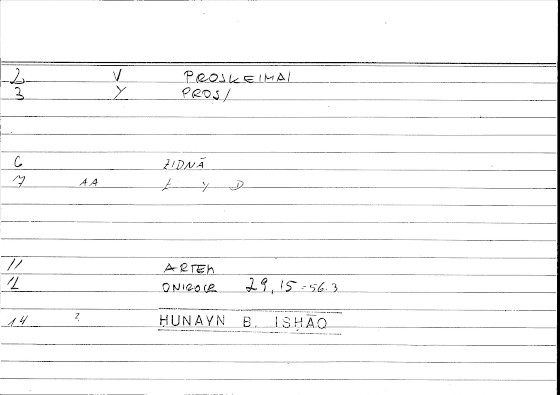 2 V PROSKEIMAI
3 Y PROS/
6 ZIDNĀ
7 AA Z Y D
11 ARTEM
12 ONIROCR 29,15-56.3
14 ? HUNAYN B. ISḤĀQ